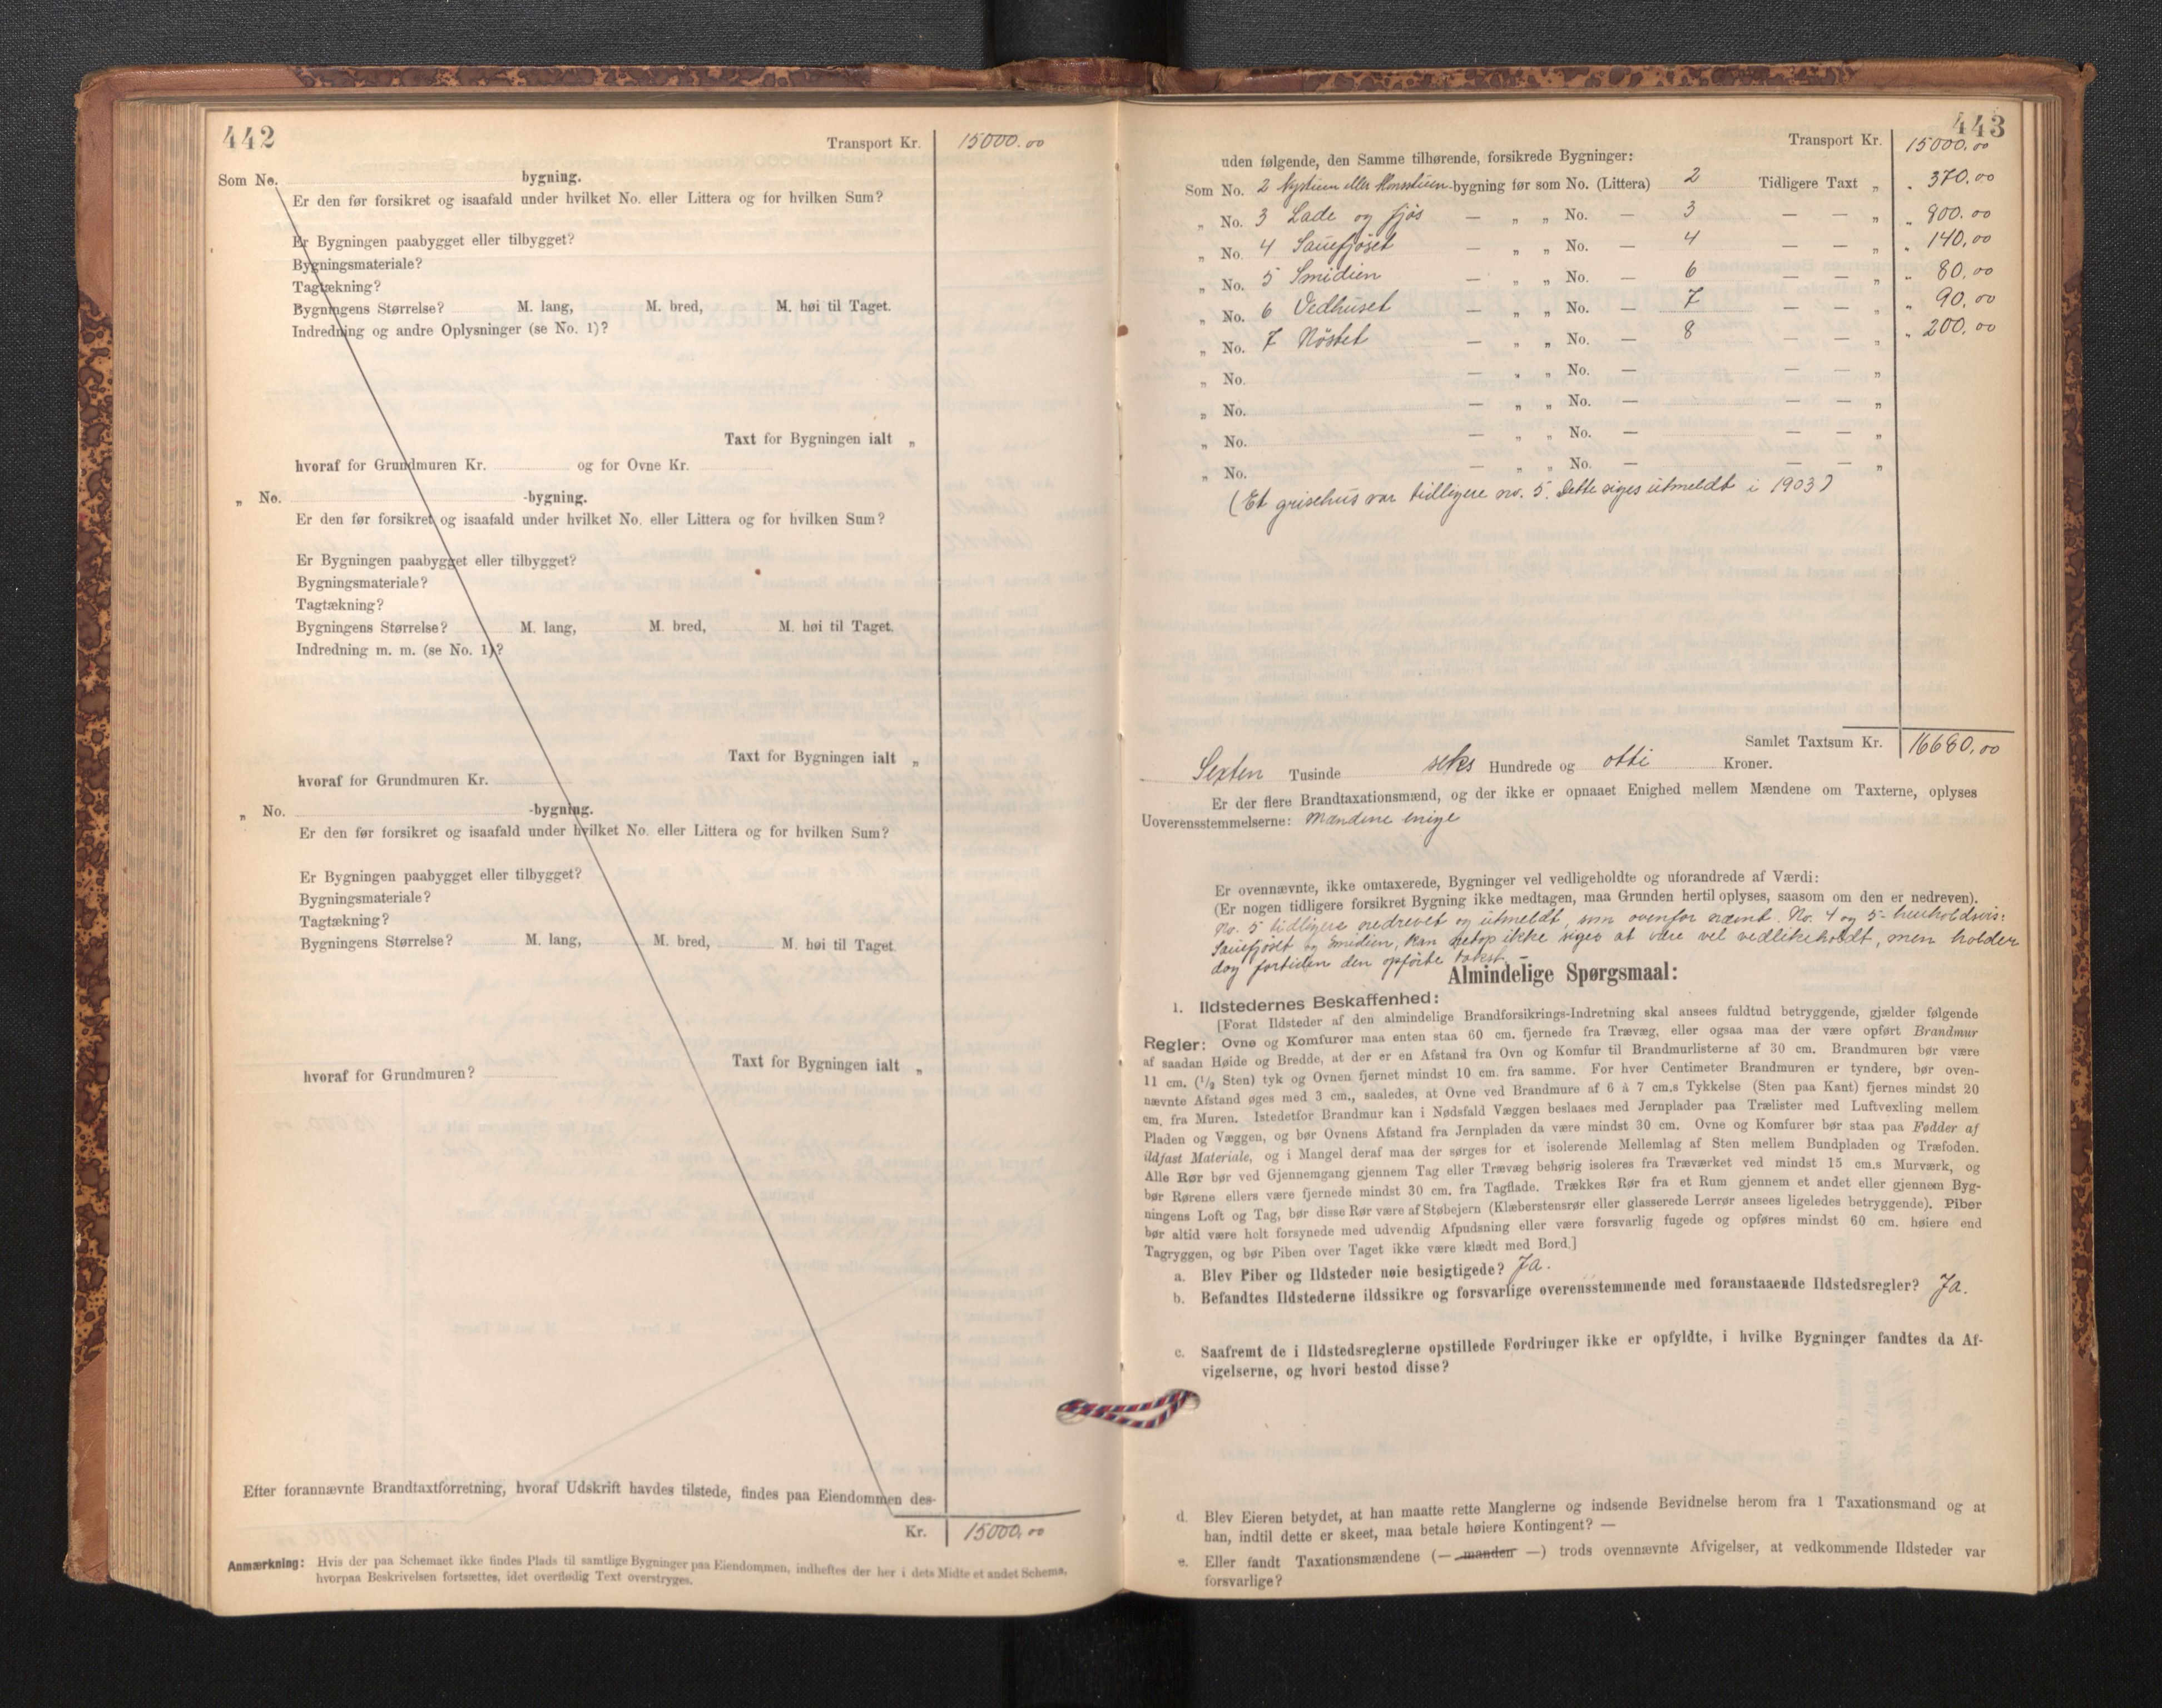 442
Transport Kr. 15000.00
Som No. bygning.
Er den før forsikret og isaafald under hvilket No. eller Littera og for hvilken Sum?
Er Bygningen paabygget eller tilbygget?
Bygningsmateriale?
Tagtækning?
Bygningens Størrelse? M. lang, M. bred, M. høi til Taget.
Indredning og andre Oplysninger (se No. 1)?
Taxt for Bygningen ialt „
hvoraf for Grundmuren Kr. og for Ovne Kr.
„ No. -bygning.
Er den før forsikret og isaafald under hvilket No. eller Littera og for hvilken Sum?
Er Bygningen paabygget eller tilbygget?
Bygningsmateriale?
Tagtækning?
Bygningens Størrelse? M. lang, M. bred, M. høi til Taget.
Indredning m. m. (se No. 1)?
Taxt for Bygningen ialt „
hvoraf for Grundmuren Kr.
„ No. -bygning.
Er den før forsikret og isaafald under hvilket No. eller Littera og for hvilken Sum?
Er Bygningen paabygget eller tilbygget?
Bygningsmateriale?
Tagtækning?
Bygningens Størrelse? M. lang, M. bred, M. høi til Taget.
Taxt for Bygningen ialt „
hvoraf for Grundmuren?
Efter forannævnte Brandtaxtforretning, hvoraf Udskrift havdes tilstede, findes paa Eiendommen des-
Kr. 15000,00
Anmærkning: Hvis der paa Schemaet ikke findes Plads til samtlige Bygninger paa Eiendommen, indheftes der her i dets Midte et andet Schema,
hvorpaa Beskrivelsen fortsættes, idet overflødig Text overstryges.
443
Transport Kr. 15000,00
uden følgende, den Samme tilhørende, forsikrede Bygninger:
Som No. 2 Nystuen eller -bygning før som No. (Littera) 2 Tidligere Taxt „ „ 370.00
„ No. 3 Lade og fjøs — „ „ No. — 3 — — „ „ 800.00
„ No. 4 Sauefjöset — „ „ No. — 4 — — „ „ 140,00
„ No. 5 Smidien — „ „ No. — 6 — — „ „ 80.00
„ No. 6 Vedhuset — „ „ No. — 7 — — „ „ 90,00
„ No. 7 Nöstet — „ „ No. — 8 — — „ „ 200.00
„ No. — „ „ No. — — — „
„ No. — „ „ No. — — — „
„ No. — „ „ No. — — — „
„ No. — „ „ No. — — — „
(Et grisehus var tidligere no. 5. Dette siges utmeldt i 1903)
Samlet Taxtsum Kr. 16680,00
Sexten Tusinde seks Hundrede og otti Kroner.
Er der flere Brandtaxationsmænd, og der ikke er opnaaet Enighed mellem Mændene om Taxterne, oplyses
Uoverensstemmelserne: Mændene enige
Er ovennævnte, ikke omtaxerede, Bygninger vel vedligeholdte og uforandrede af Værdi:
(Er nogen tidligere forsikret Bygning ikke medtagen, maa Grunden hertil oplyses, saasom om den er nedreven).
No. 5 tidligere nedrevet og utmeldt, som ovenfor nævnt. No. 4 og 5- henholdsvis:
Sauefjöset og Smidien, kan netop ikke siges at være vel vedlikeholdt, men holder
dog fortiden den opförte takst.
Almindelige Spørgsmaal:
1. Ildstedernes Beskaffenhed:
[Forat Ildsteder af den almindelige Brandforsikrings-Indretning skal ansees fuldtud betryggende, gjælder følgende
Regler: Ovne og Komfurer maa enten staa 60 cm. fjernede fra Trævæg, eller ogsaa maa der være opført Brandmur
af saadan Høide og Bredde, at der er en Afstand fra Ovn og Komfur til Brandmurlisterne af 30 cm. Brandmuren bør være
11 cm. (1/2 Sten) tyk og Ovnen fjernet mindst 10 cm. fra samme. For hver Centimeter Brandmuren er tyndere, bør oven-
nævnte Afstand øges med 3 cm., saaledes, at Ovne ved Brandmure af 6 à 7 cm.s Tykkelse (Sten paa Kant) fjernes mindst 20
cm. fra Muren. Istedetfor Brandmur kan i Nødsfald Væggen beslaaes med Jernplader paa Trælister med Luftvexling mellem
Pladen og Væggen, og bør Ovnens Afstand fra Jernpladen da være mindst 30 cm. Ovne og Komfurer bør staa paa Fødder af
ildfast Materiale, og i Mangel deraf maa der sørges for et isolerende Mellemlag af Sten mellem Bundpladen og Træfoden.
Alle Rør bør ved Gjennemgang gjennem Tag eller Trævæg behørig isoleres fra Træværket ved mindst 15 cm.s Murværk, og
bør Rørene ellers være fjernede mindst 30 cm. fra Tagflade. Trækkes Rør fra et Rum gjennem et andet eller gjennem Byg-
ningens Loft og Tag, bør disse Rør være af Støbejern (Klæberstensrør eller glasserede Lerrør ansees ligeledes betryggende). Piber
bør altid være helt forsynede med udvendig Afpudsning eller være forsvarlig fugede og opføres mindst 60 cm. høiere end
Tagryggen, og bør Piben over Taget ikke være klædt med Bord.]
a. Blev Piber og Ildsteder nøie besigtigede? Ja.
b. Befandtes Ildstederne ildssikre og forsvarlige overensstemmende med foranstaaende Ildstedsregler? Ja.
c. Saafremt de i Ildstedsreglerne opstillede Fordringer ikke er opfyldte, i hvilke Bygninger fandtes da Af-
vigelserne, og hvori bestod disse?
d. Blev Eieren betydet, at han maatte rette Manglerne og indsende Bevidnelse herom fra 1 Taxationsmand og at
han, indtil dette er skeet, maa betale høiere Kontingent? —
e. Eller fandt Taxationsmændene (— manden —) trods ovennævnte Afvigelser, at vedkommende Ildsteder var
forsvarlige?